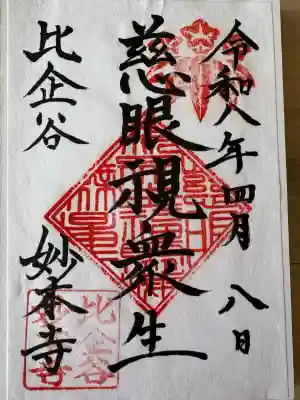 令和八年四月八日
慈眼視衆生
比企谷
妙本寺